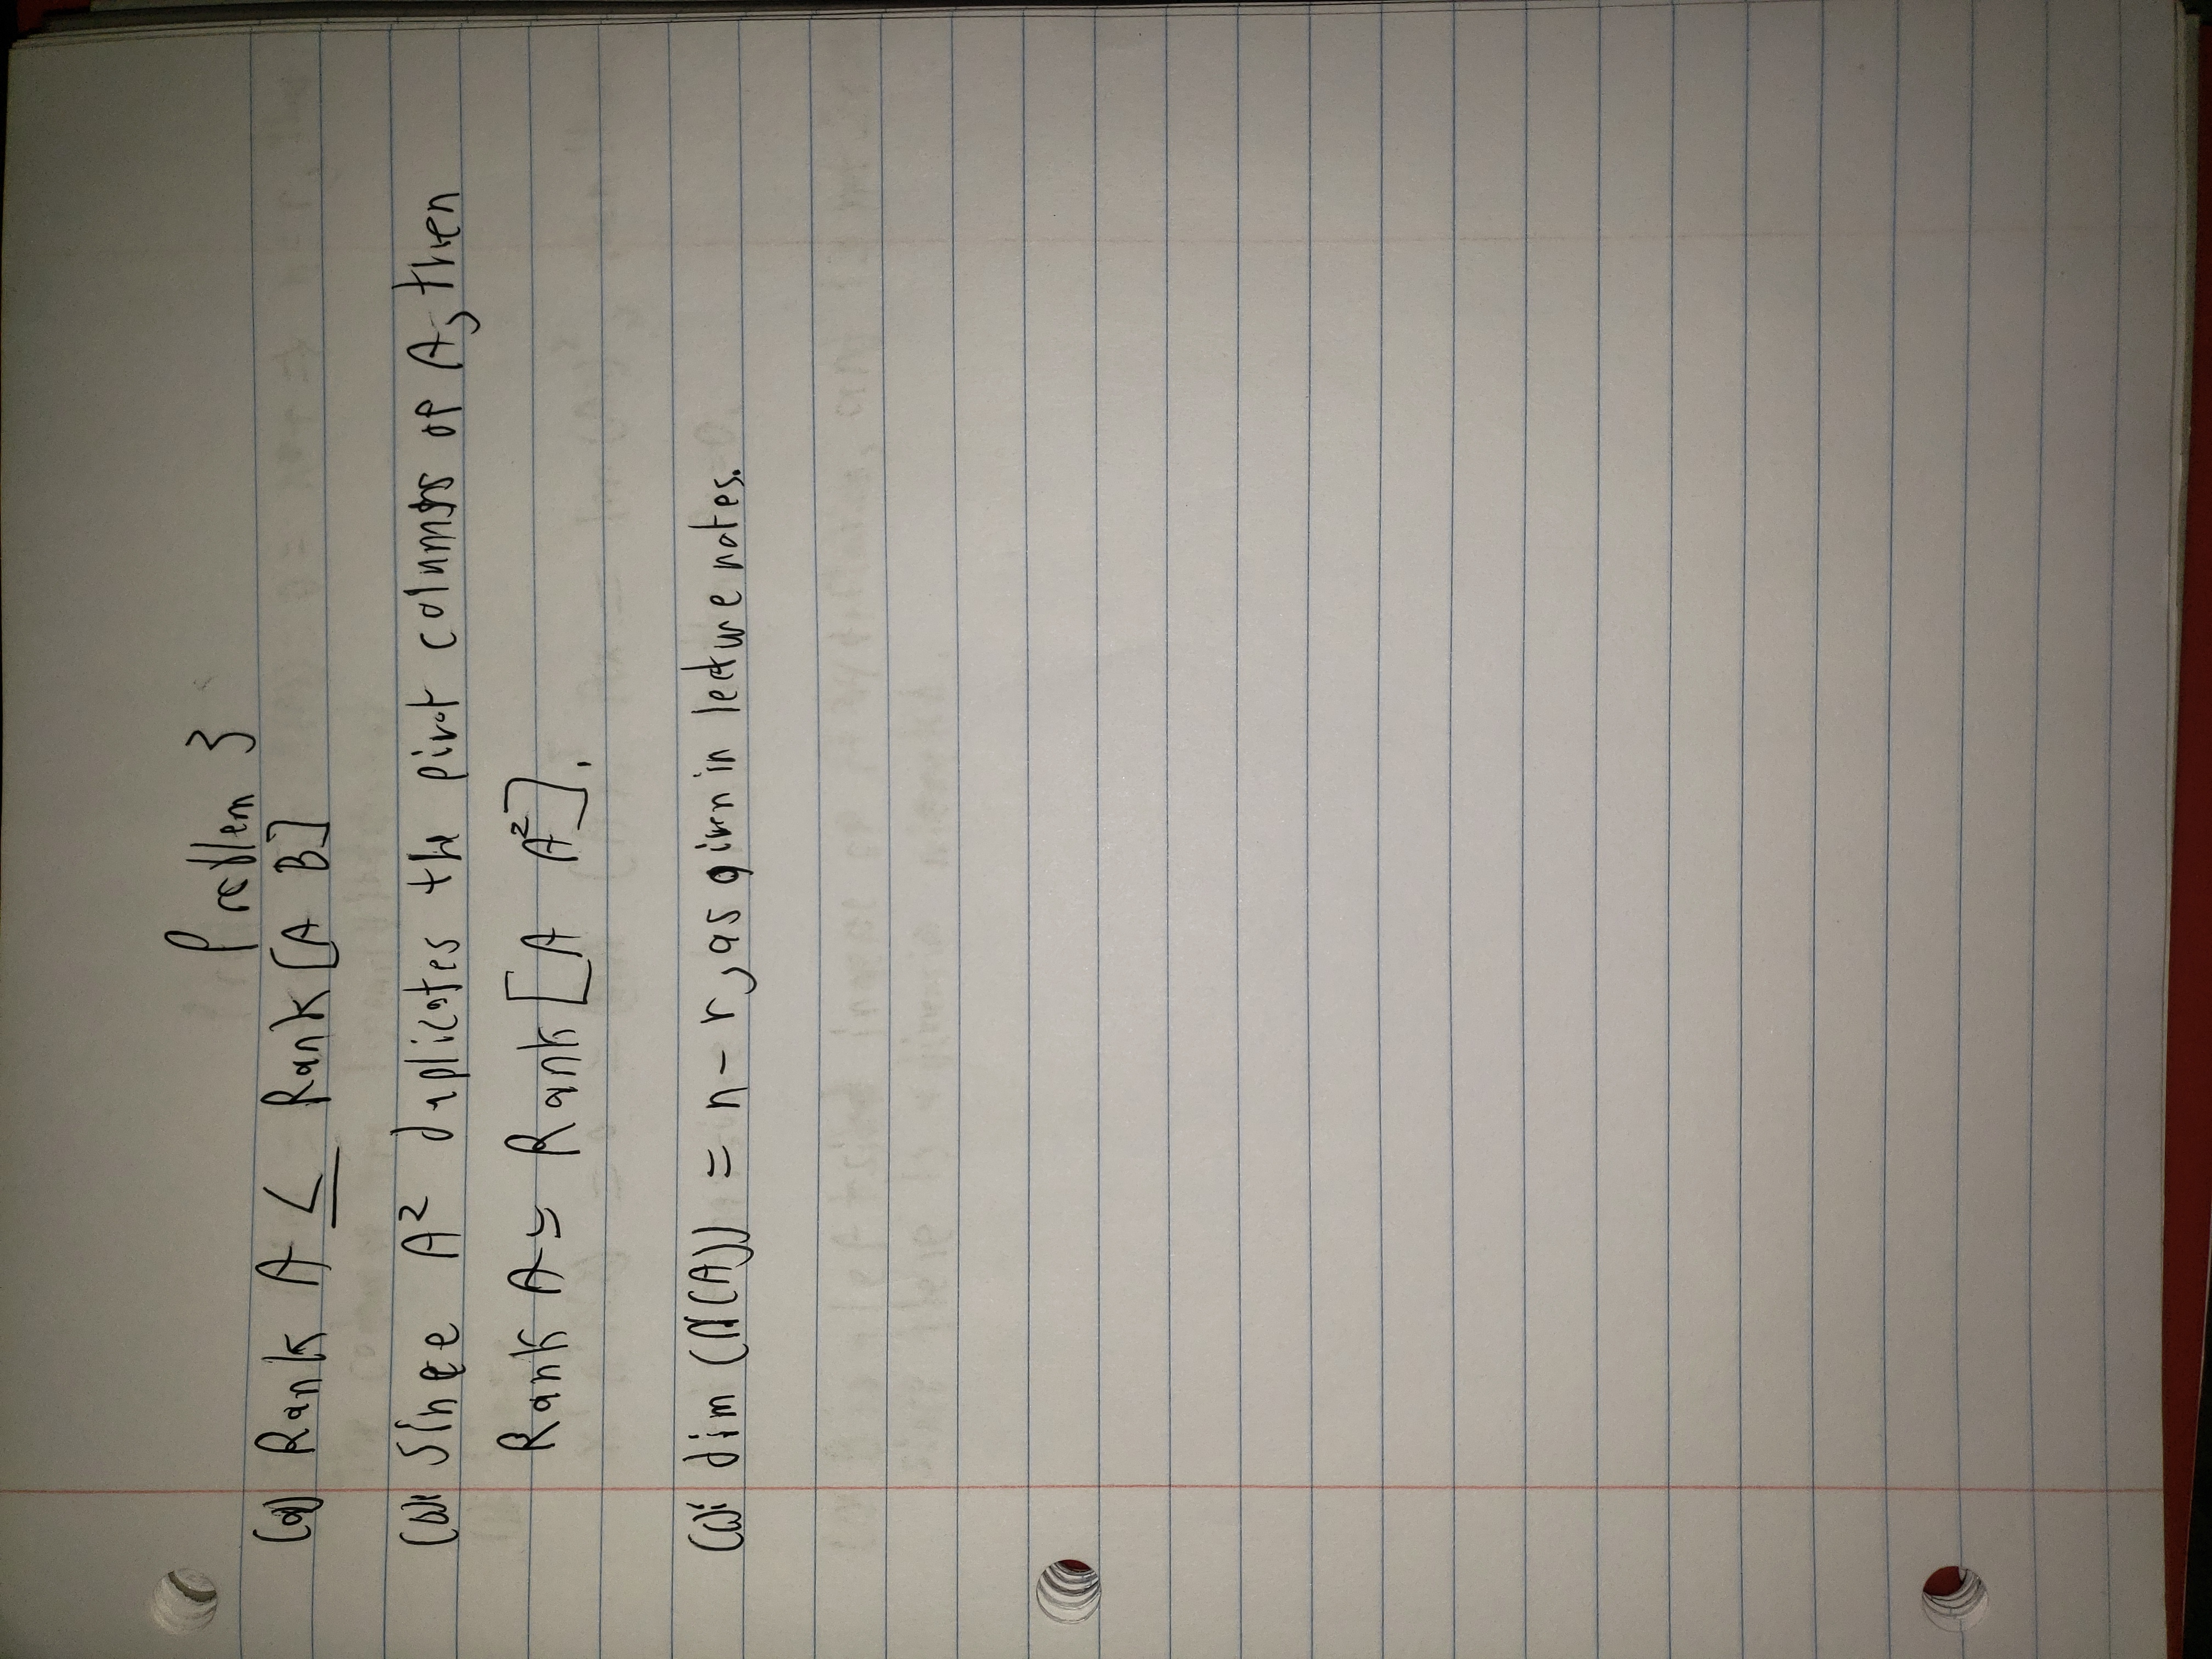 Problem 3
(a) Rank A ≤ Rank [A B]
(b): Since A² duplicates the pivot columns of A, then
Rank A = Rank [A A²].
(c): dim (N(A)) = n - r, as given in lecture notes.